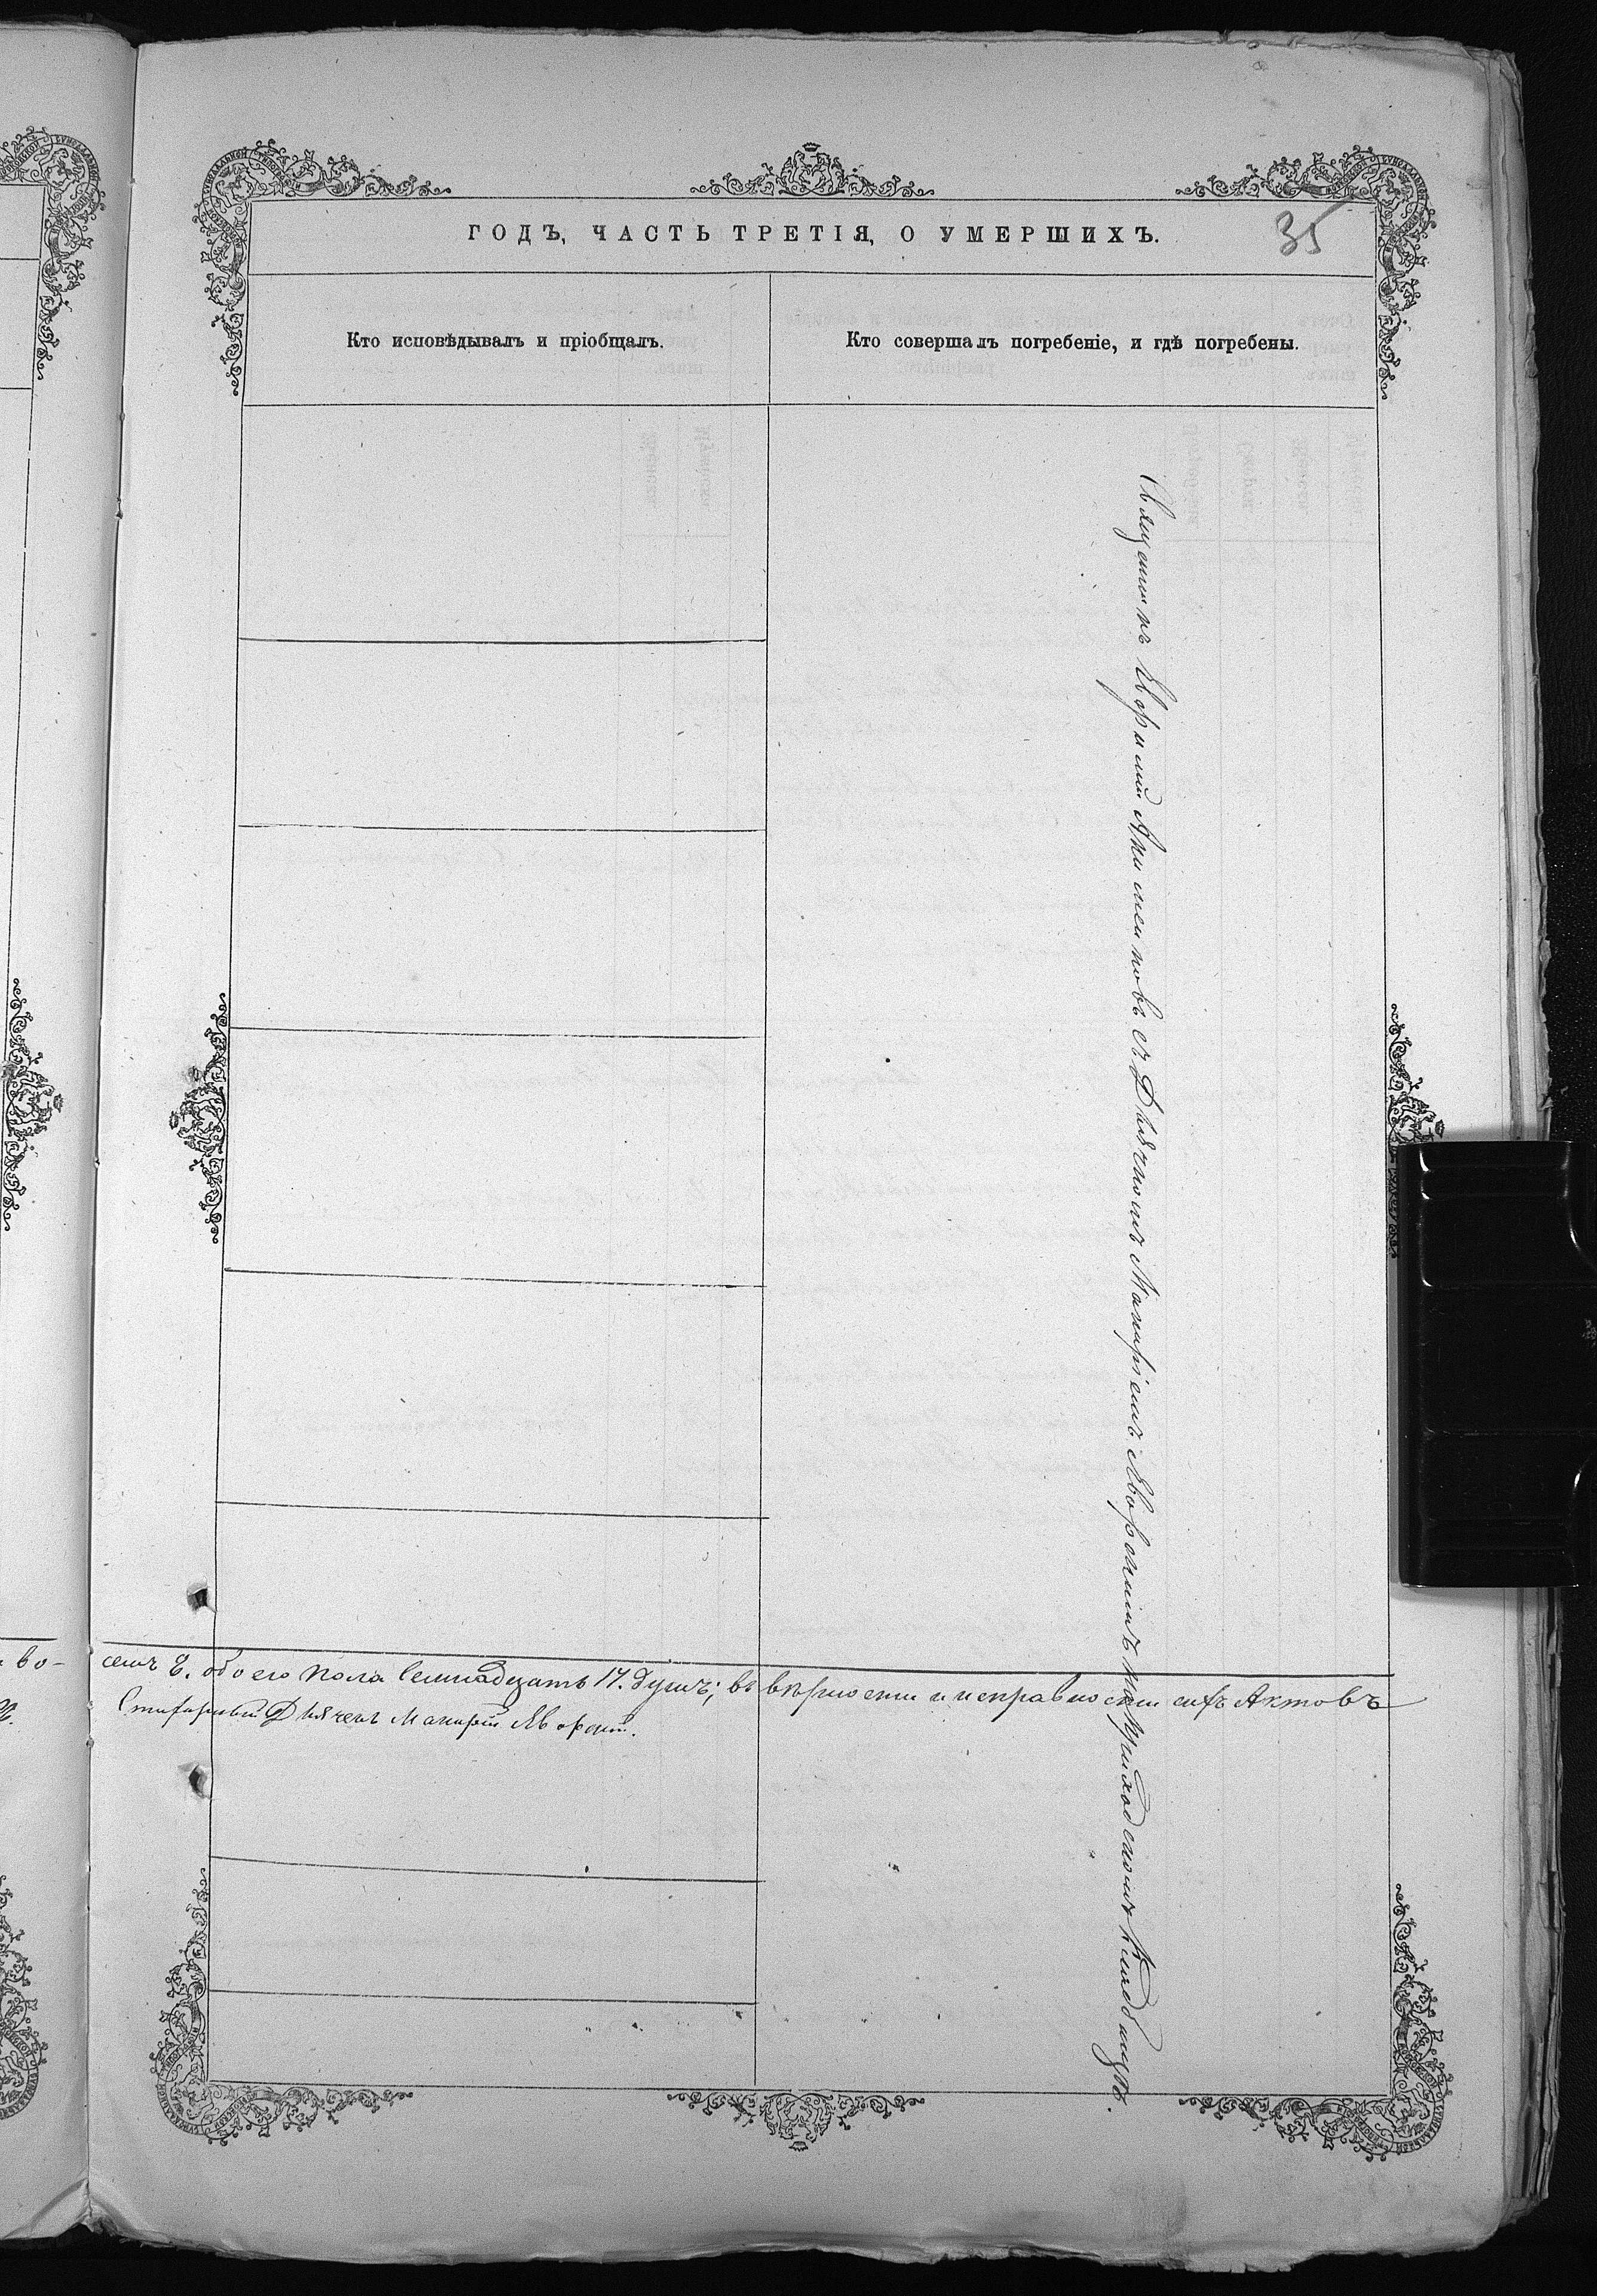 ГОДЪ, ЧАСТЬ ТРЕТІЯ, О УМЕРШИХЪ.
35
Кто исповѣдывалъ и пріобщалъ.
Кто совершалъ погребеніе, и гдѣ погребены.
Священникъ Евфимій съ Дьячкомъ Макаріемъ Яворскимъ на приходскомъ Кладбищѣ.
во-
семъ 8. обоего пола Семнадцать 17. душъ; въ вѣрности и исправности сихъ Актовъ
Дьячекъ Макарій Яворскій.